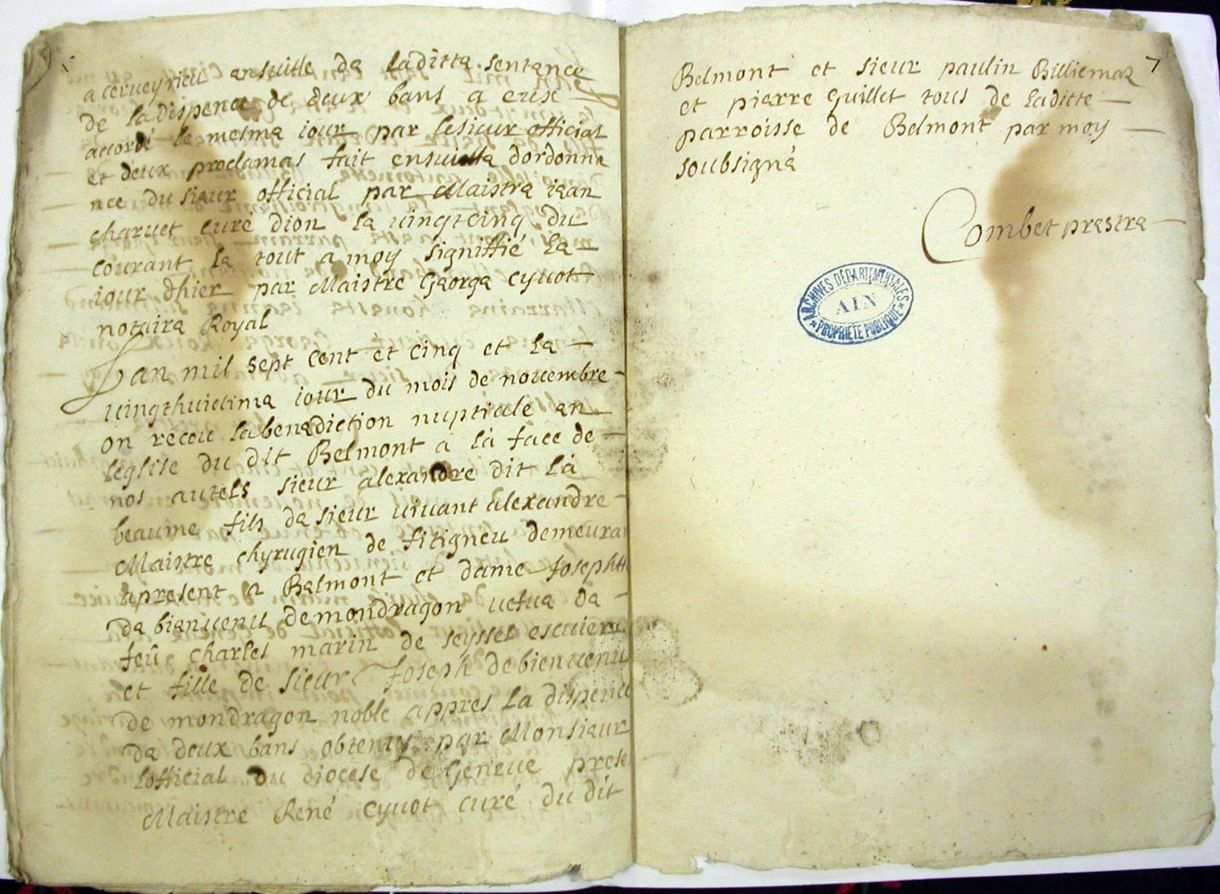 a cerveyrieu ensuitte de laditte sentence
de la dispence de deux bans a eux
accordé le mesme iour par lesieur official
et deux proclamas fait ensuitte dordonna
nce du sieur official par Maistre iean
charuet curé dion le vingtcinq du
courant le tout a moy signiffié le
iour dhier par Maistre George cyuot
notaire Royal
Lan mil sept cent et cinq et le
vingthuictime iour du mois de nouembre
on receu la benediction nuptiale en
léglise du dit Belmont a la face de
nos autels sieur alexandre dit la
beaume fils de sieur viuant alexandre
Maistre chyrugien de fitigneu demeuran
apresent a Belmont et dame Joseph
de bienuenu demondragon vefue de
feü charles marin de seyssel escuier
et fille de sieur Joseph de bienuenu
de mondragon noble appres la dispence
de deux bans obtenus par Monsieur
lofficial du diocese de Geneue prese
Maistre René cyuot curé du dit
7
Belmont et sieur paulin Billiemaz
et pierre Guillet tous de laditte
parroisse de Belmont par moy
soubsigné
Combet prestre
ARCHIVES DÉPARTEMENTALES
AIN
PROPRIÉTÉ PUBLIQUE